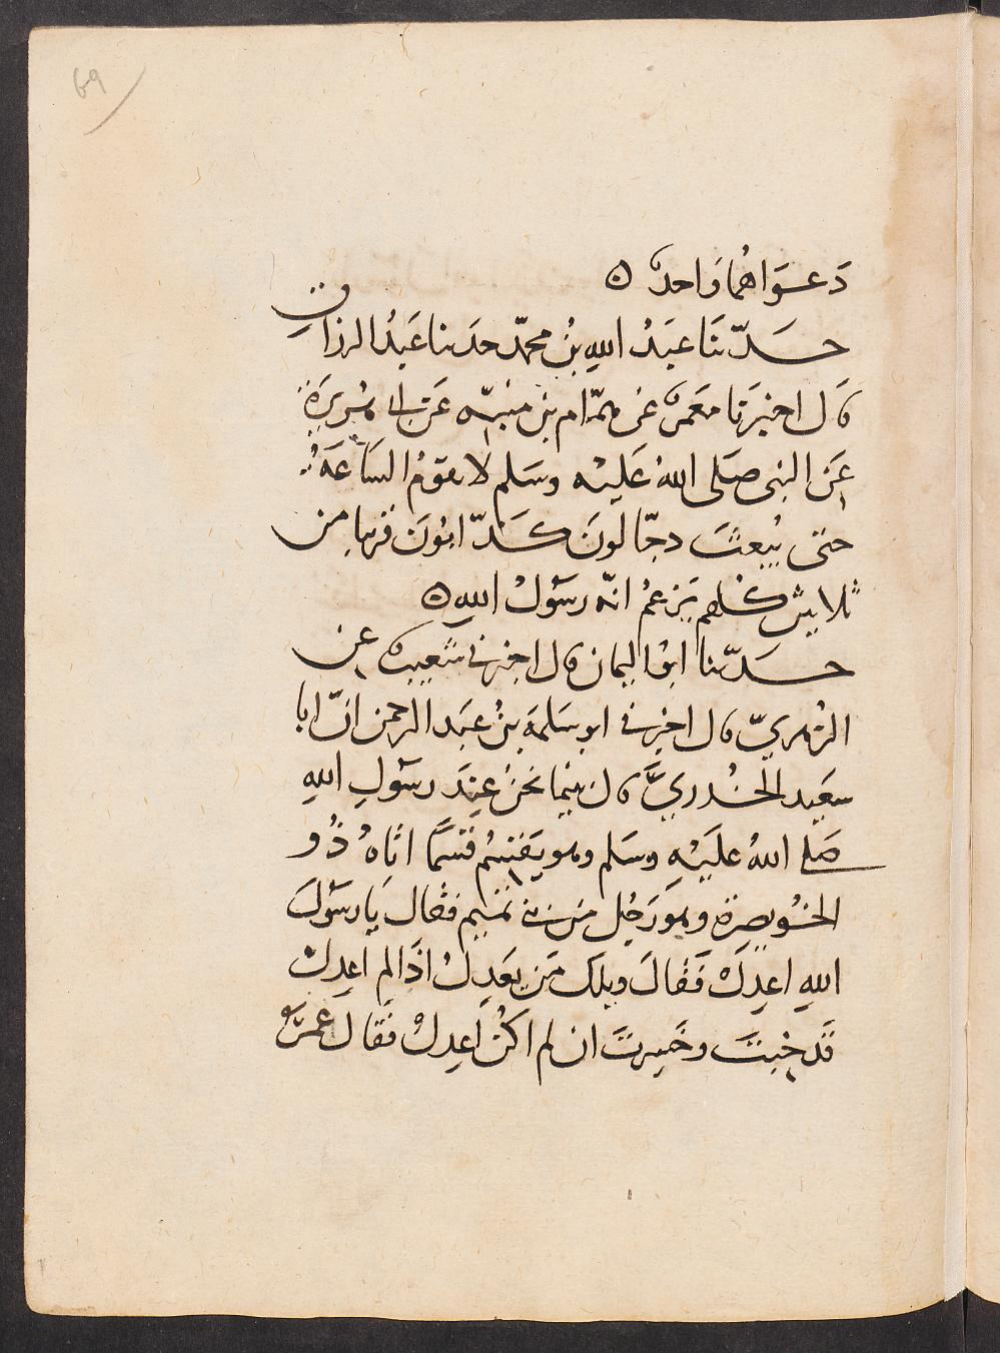 69
دَعوَاهُمَا وَاحدة ٥
حدّثنَا عَبدُ اللهِ بنُ محمّد حدثنا عَبدُ الرزاق
قَال اخبرَنا معَمر عَن همّام بنِ منبّه عَن ابي هُريرَة
عَن النبي صَلى اللهُ عَليْه وسَلم لا تقومُ السَاعَةُ
حتى يُبعثَ دجّالونَ كذّابُونَ قريبا من
ثلاثين كلُهم يَزعمُ انّه رسَولُ اللهِ ٥
حدّثنا ابوُ اليمان قال اخبرني شعَيب عن
الزُهريّ قال اخبرني ابو سَلمة بنُ عبَد الرحمن انّ ابا
سعَيد الخُدريَّ قال بينما نحنُ عِندَ رسَولِ اللهِ
صَلى اللهُ عليْهِ وسَلم وهو يَقسمُ قسَمًا اتاهُ ذُو
الخُويصرة وهوَ رَجُل من بني تميم فقال يَا رسَولَ
اللهِ اعدِلْ فَقالَ ويلك مَن يعَدِلُ اذَا لم اعدِلْ
قَد خبتَ وخَسِرتَ ان لم اكُنْ اَعدِلُ فقَال عُمرُ